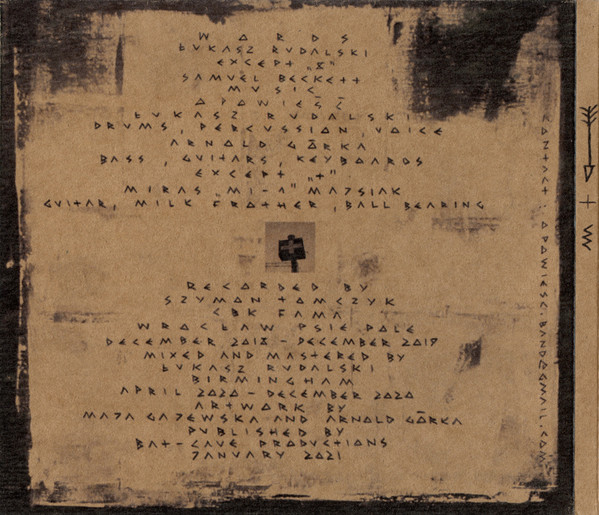 WORDS
ŁUKASZ RUDALSKI
EXCEPT „8"
SAMUEL BECKETT
MUSIC
OPOWIEŚĆ
ŁUKASZ RUDALSKI
DRUMS, PERCUSSION, VOICE
ARNOLD GÓRKA
BASS, GUITARS, KEYBOARDS
EXCEPT „+"
MIRAS „MI-A" MAJSIAK
GUITAR, MILK FROTHER, BALL BEARING
RECORDED BY
SZYMON TOMCZYK
CBK FAMA
WROCŁAW PSIE POLE
DECEMBER 2018 - DECEMBER 2019
MIXED AND MASTERED BY
ŁUKASZ RUDALSKI
BIRMINGHAM
APRIL 2020 - DECEMBER 2020
ARTWORK BY
MAJA GAJEWSKA AND ARNOLD GÓRKA
PUBLISHED BY
BAT-CAVE PRODUCTIONS
JANUARY 2021
CONTACT: OPOWIESC.BAND@GMAIL.COM